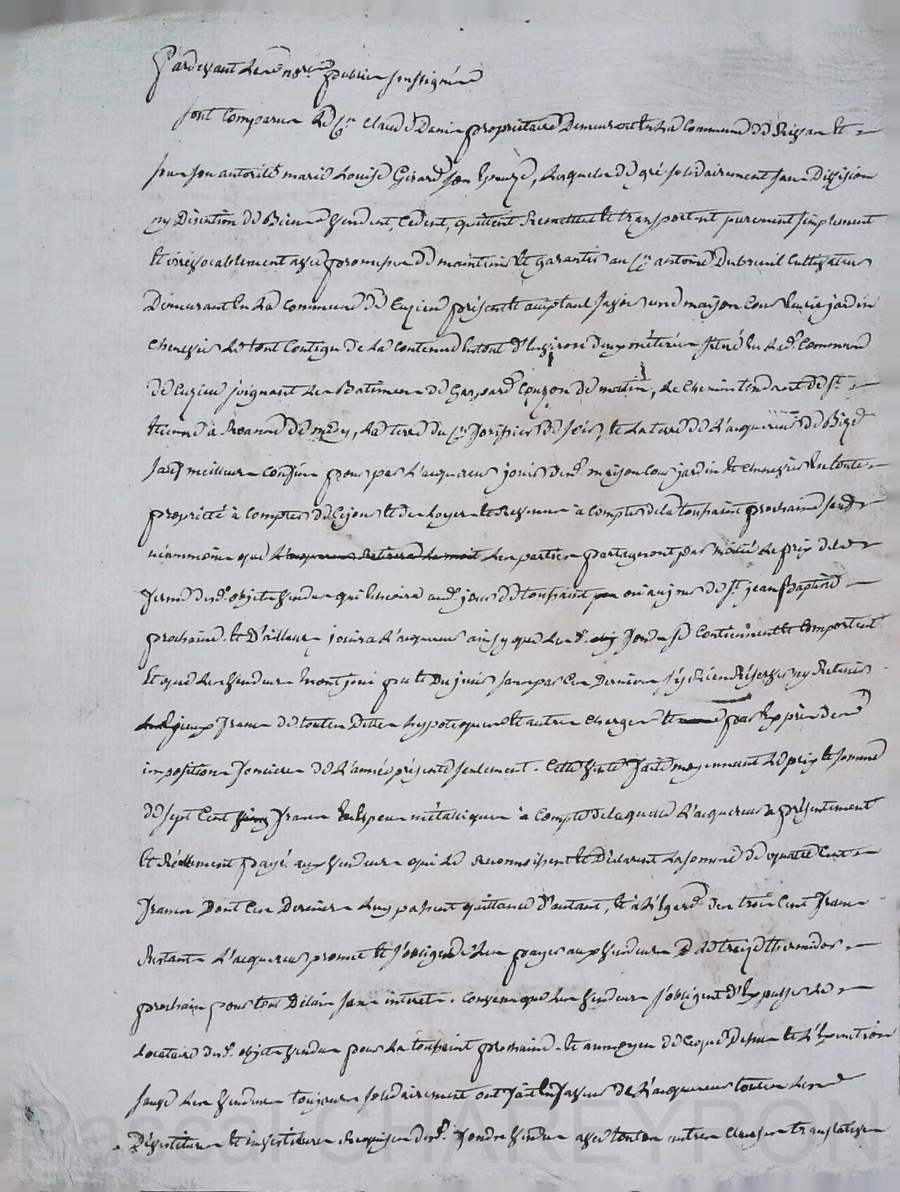 Pardevant les nore publics soussignés
sont comparus le Cn Claude Denis propriétaire demeurant en la Commune de et
sous son autorité marie Louise Girard son Epouze, lesquels de gré solidairement sans Division
ny Discution de Biens Vendent, Cedent, quittent Remettent et transportent purement simplement
et irrévocablement avec promesse de maintenir et garantir au Cn antoine Dubreuil Cultivateur
Demeurant en la Commune de Cuzieu présent et acceptant savoir une maison Cour Ecurie jardin
chenevier le tout Contigu de la Contenue en tout d'Environ deux méterées situé en lad. Commune
de Cuzieu joignant les Batiments de Gaspard Couzon de matin, le Chemin tendant de St
Etienne à Roanne de midy, la terre du Cn de soir, et la terre de l'acquereur de Bize
sauf meilleurs Confins pour par l'acquereur jouir desd. maison Cour jardin et chenevier en toute
propriété à Compter de Ce jour et des loyers et Revenus à Compter de la toussaint prochaine sauf
néanmoins que les parties partageront par moitié le prix de la
ferme desd. objets Vendus qui Encoira aud. jour de toussaint ou au jour de St jean Baptiste
prochaine et D'ailleurs jouira l'acquereur ainsy que lesd. fonds se Contiennent et Comportent
et que les Vendeurs en ont joui pu et du jouir sans par Ces Derniers s'y Rien Réserver ny Retenir
francs de toutes Dettes hypoteques et autres charges et pour les
impositions foncieres de l'année présente seulement. Cette Vente faite moyennant le prix et somme
de sept Cent francs En Espèces métaliques à Compte de laquelle l'acquereur a présentement
et Réellement payé aux Vendeurs qui le Reconnoissent et Déclarent la somme de quatre Cent
francs Dont Ces Derniers luy passent quittance d'autant, et à l'égard des trois Cent francs
Restants l'acquereur promet et s'oblige de les payer aux Vendeurs le treize thermidor
prochain pour tout Délais sans interets. Convenu que les Vendeurs s'obligent d'Expulser le
locataire desd. objets Vendus pour la toussaint prochaine. et au moyen de Ce que Dessus et l'Exécution
sauve les Vendeurs toujours solidairement ont fait En faveur de l'acquereur toutes les
Dévestiture et investiture Requises desd. fonds Vendus avec toutes autres Clauses translatives
Pascal CHAREYRON